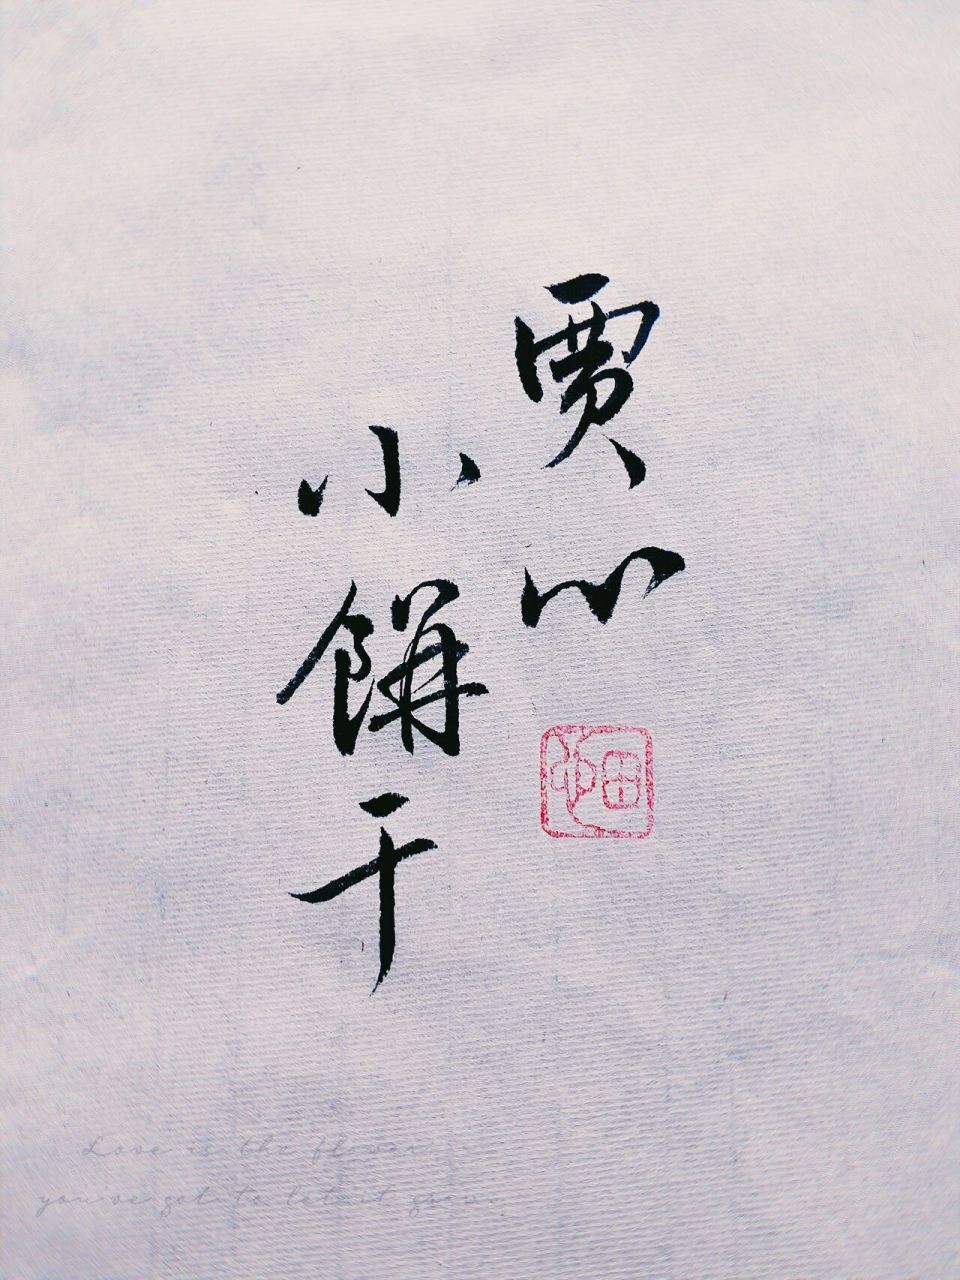 贾心
小餅干
Love is the flower
you've got to let it grow.